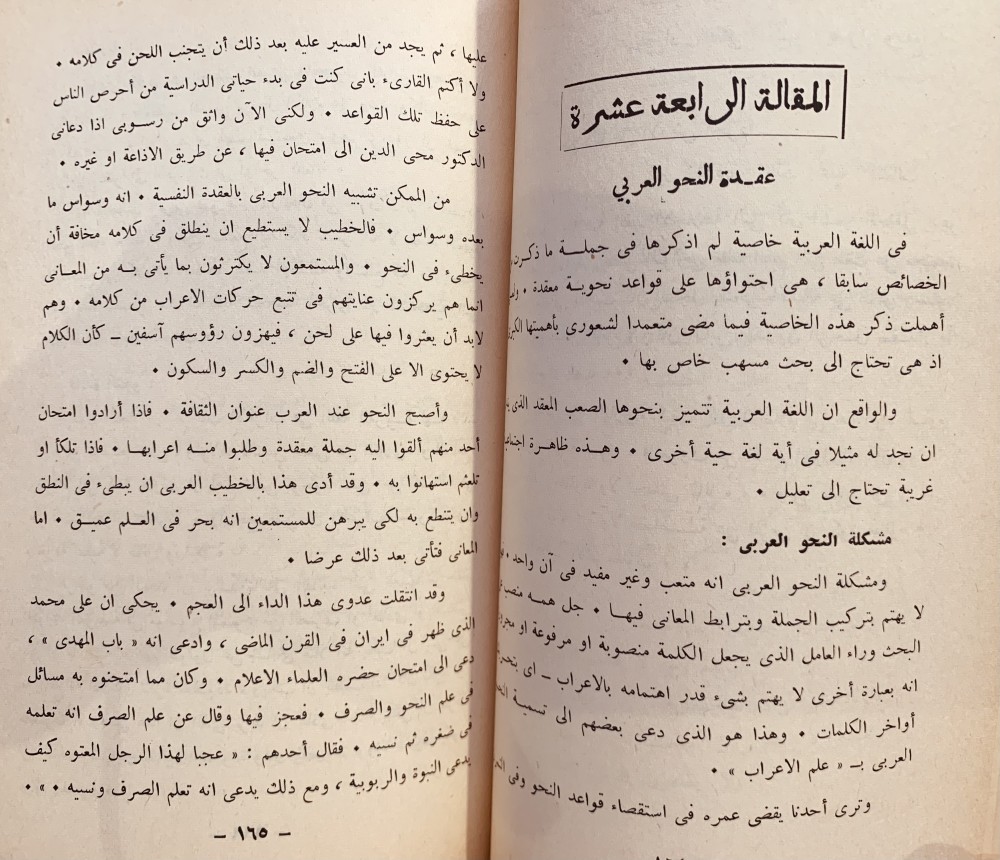 المقالة الرابعة عشرة
عقدة النحو العربي
فى اللغة العربية خاصية لم اذكرها فى جملة ما ذكرت
الخصائص سابقا ، هى احتواؤها على قواعد نحوية معقدة ٠
أهملت ذكر هذه الخاصية فيما مضى متعمدا لشعورى بأهميتها
اذ هى تحتاج الى بحث مسهب خاص بها ٠
والواقع ان اللغة العربية تتميز بنحوها الصعب المعقد الذى
ان نجد له مثيلا فى أية لغة حية أخرى ٠ وهذه ظاهرة
غريبة تحتاج الى تعليل ٠
مشكلة النحو العربى :
ومشكلة النحو العربى انه متعب وغير مفيد فى آن واحد ٠
لا يهتم بتركيب الجملة وبترابط المعانى فيها ٠ جل همه
البحث وراء العامل الذى يجعل الكلمة منصوبة او مرفوعة او
انه بعبارة أخرى لا يهتم بشىء قدر اهتمامه بالاعراب ــ اى
أواخر الكلمات ٠ وهذا هو الذى دعى بعضهم الى تسمية
العربى بـ « علم الاعراب » ٠
وترى أحدنا يقضى عمره فى استقصاء قواعد النحو وفى
عليها ، ثم يجد من العسير عليه بعد ذلك أن يتجنب اللحن فى كلامه ٠
ولا أكتم القارىء بانى كنت فى بدء حياتى الدراسية من أحرص الناس
على حفظ تلك القواعد ٠ ولكنى الآن واثق من رسوبى اذا دعانى
الدكتور محى الدين الى امتحان فيها ، عن طريق الاذاعة او غيره ٠
من الممكن تشبيه النحو العربى بالعقدة النفسية ٠ انه وسواس ما
بعده وسواس ٠ فالخطيب لا يستطيع ان ينطلق فى كلامه مخافة أن
يخطىء فى النحو ٠ والمستمعون لا يكترثون بما يأتى به من المعانى
انما هم يركزون عنايتهم فى تتبع حركات الاعراب من كلامه ٠ وهم
لابد أن يعثروا فيها على لحن ، فيهزون رؤوسهم آسفين ــ كأن الكلام
لا يحتوى الا على الفتح والضم والكسر والسكون ٠
وأصبح النحو عند العرب عنوان الثقافة ٠ فاذا أرادوا امتحان
أحد منهم ألقوا اليه جملة معقدة وطلبوا منه اعرابها ٠ فاذا تلكأ او
تلعثم استهانوا به ٠ وقد أدى هذا بالخطيب العربى ان يبطىء فى النطق
وان يتنطع به لكى يبرهن للمستمعين انه بحر فى العلم عميق ٠ اما
المعانى فتأتى بعد ذلك عرضا ٠
وقد انتقلت عدوى هذا الداء الى العجم ٠ يحكى ان على محمد
الذى ظهر فى ايران فى القرن الماضى ، وادعى انه « باب المهدى » ،
دعى الى امتحان حضره العلماء الاعلام ٠ وكان مما امتحنوه به مسائل
فى علم النحو والصرف ٠ فعجز فيها وقال عن علم الصرف انه تعلمه
فى صغره ثم نسيه ٠ فقال أحدهم : « عجبا لهذا الرجل المعتوه كيف
يدعى النبوة والربوبية ، ومع ذلك يدعى انه تعلم الصرف ونسيه ٠ » ٠
– ١٦٥ –